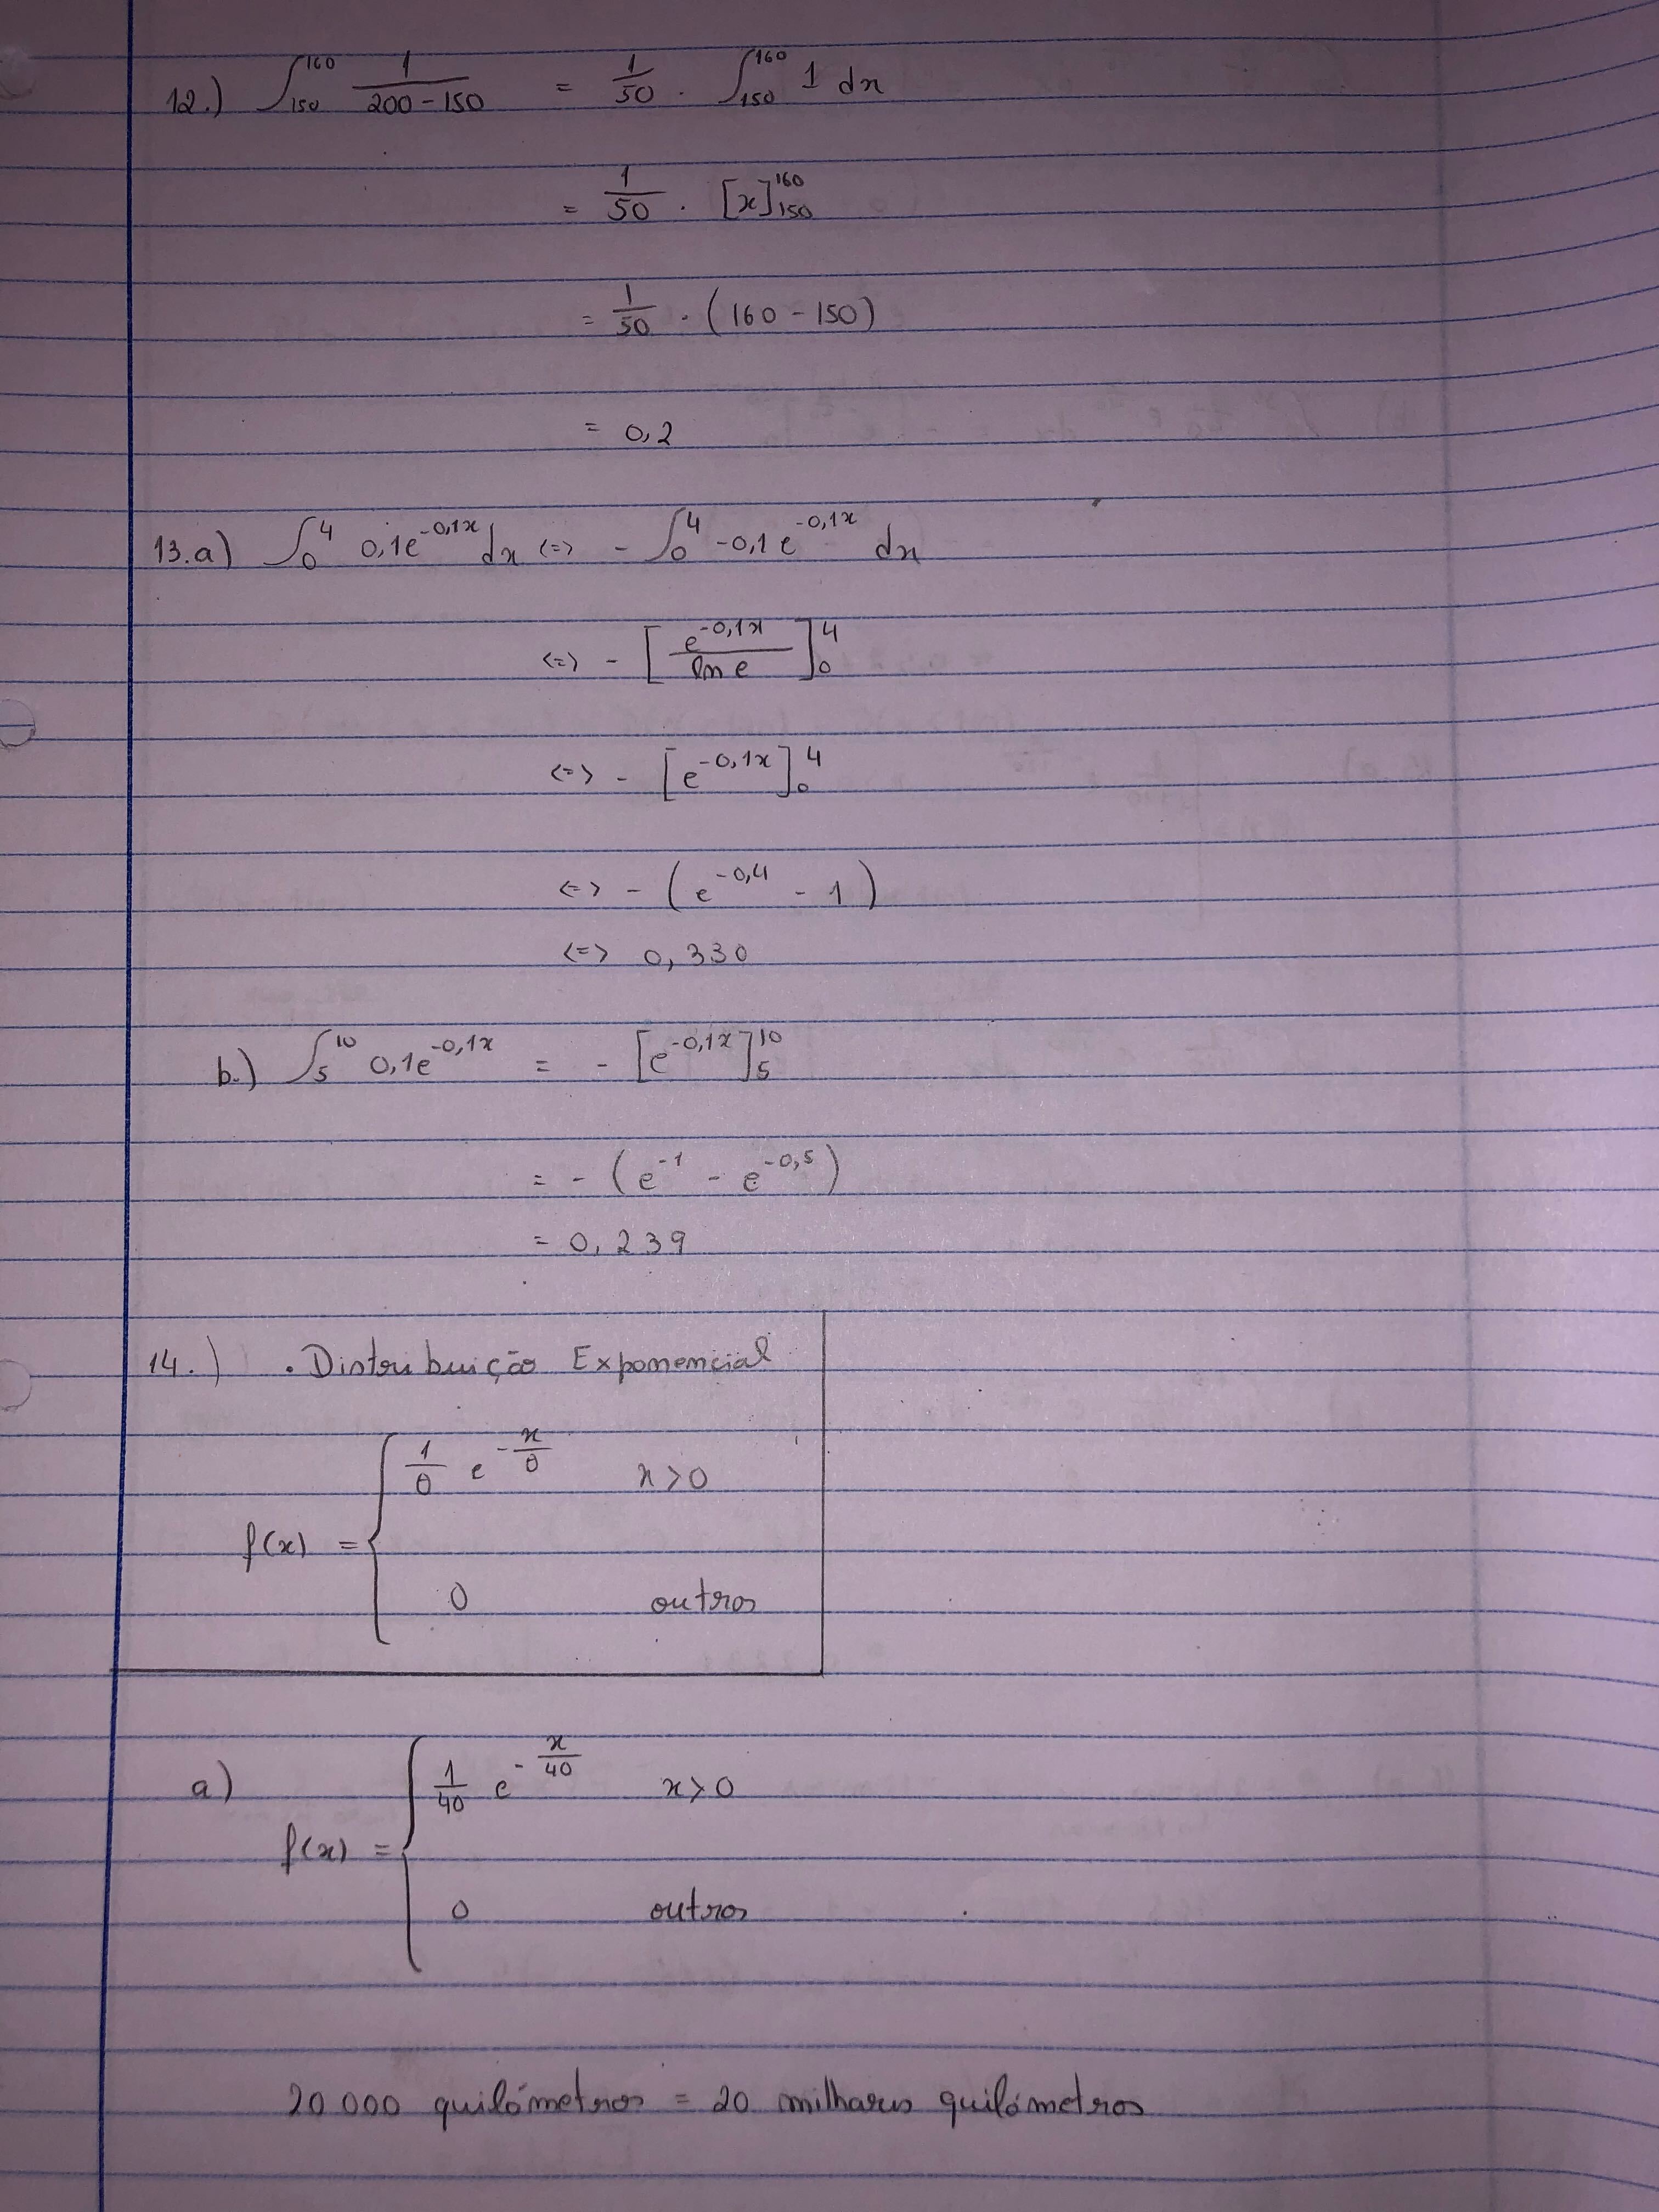 12.) ∫₁₅₀¹⁶⁰ 1/(200-150) = 1/50 · ∫₁₅₀¹⁶⁰ 1 dx
= 1/50 · [x]₁₅₀¹⁶⁰
= 1/50 · (160 - 150)
= 0,2
13.a) ∫₀⁴ 0,1e^(-0,1x) dx <=> - ∫₀⁴ -0,1 e^(-0,1x) dx
<=> - [e^(-0,1x)/ln e]₀⁴
<=> - [e^(-0,1x)]₀⁴
<=> - (e^(-0,4) - 1)
<=> 0,330
b.) ∫₅¹⁰ 0,1e^(-0,1x) = - [e^(-0,1x)]₅¹⁰
= - (e^(-1) - e^(-0,5))
= 0,239
14.) • Distribuição Exponencial
1/θ e^(-x/θ) x>0
f(x) = {
0 outros
a) 1/40 e^(-x/40) x>0
f(x) = {
0 outros
20 000 quilómetros = 20 milhares quilómetros